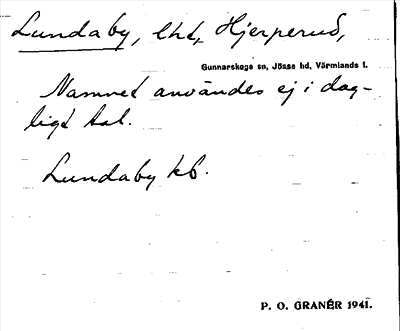 Lundaby, lht, Hjerperud,
Gunnarskogs sn, Jösse hd, Värmlands l.
Namnet användes ej i dag-
ligt tal.
Lundaby kb.
P. O. GRANÉR 1941.